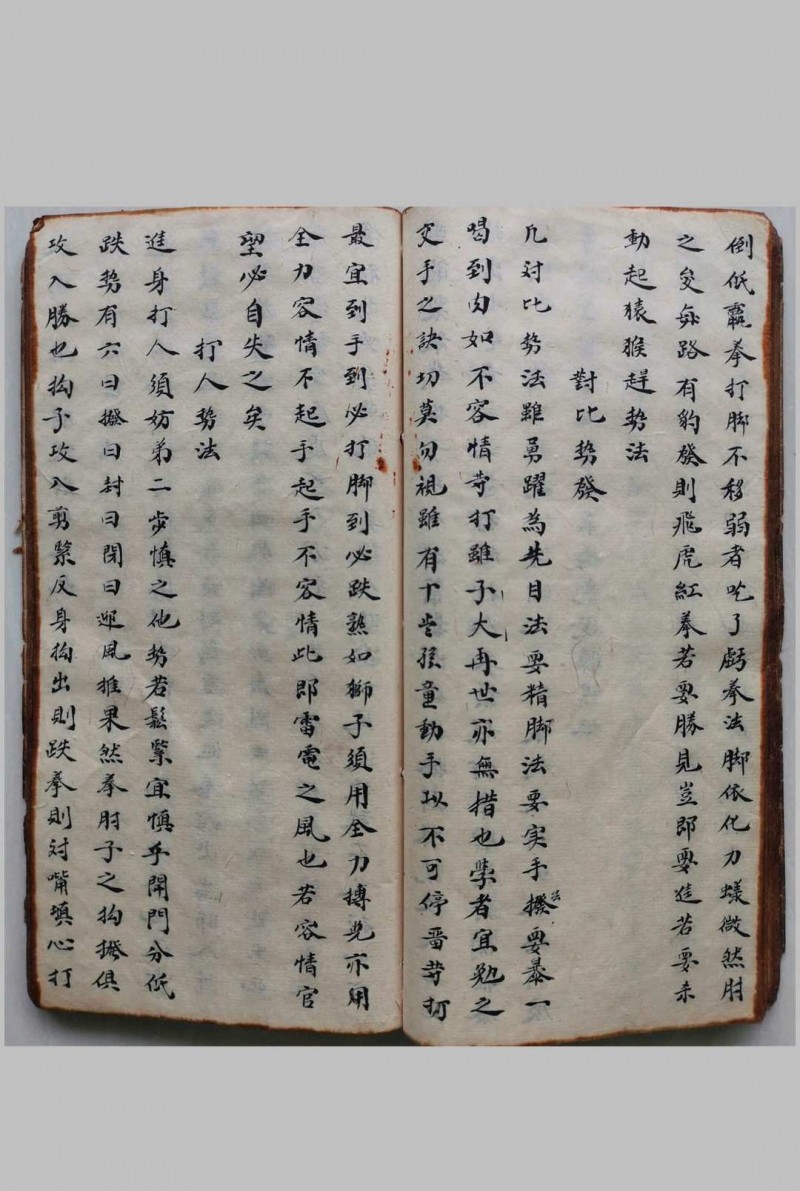 倒低羸拳打脚不移弱者吃了虧拳法脚依化刀蟻微然肘
之变每路有豹發則飛虎紅拳若要勝見豈即要進若要未
動起猿猴趕势法
對比势發
凢对比势法雖勇躍為先目法要精脚法要实手撥法要暴一
喝到肉如不容情苛打雖子大再世亦無措也學者宜勉之
交手之訣切莫勿視雖有十岁孩童動手以不可停啚苛打
最宜到手到必打脚到必跌熟如獅子須用全力摶兎亦用
全力容情不起手起手不容情此即雷電之風也若容情官
望必自失之矣
打人势法
進身打人須妨弟二步慎之他势若鬆緊宜慎乎開門分低
跌势有六曰撥曰封曰閉曰迎風推果然拳肘子之拘撥俱
攻入勝也拘子攻入剪緊反身拘出則跌拳則对嘴填心打